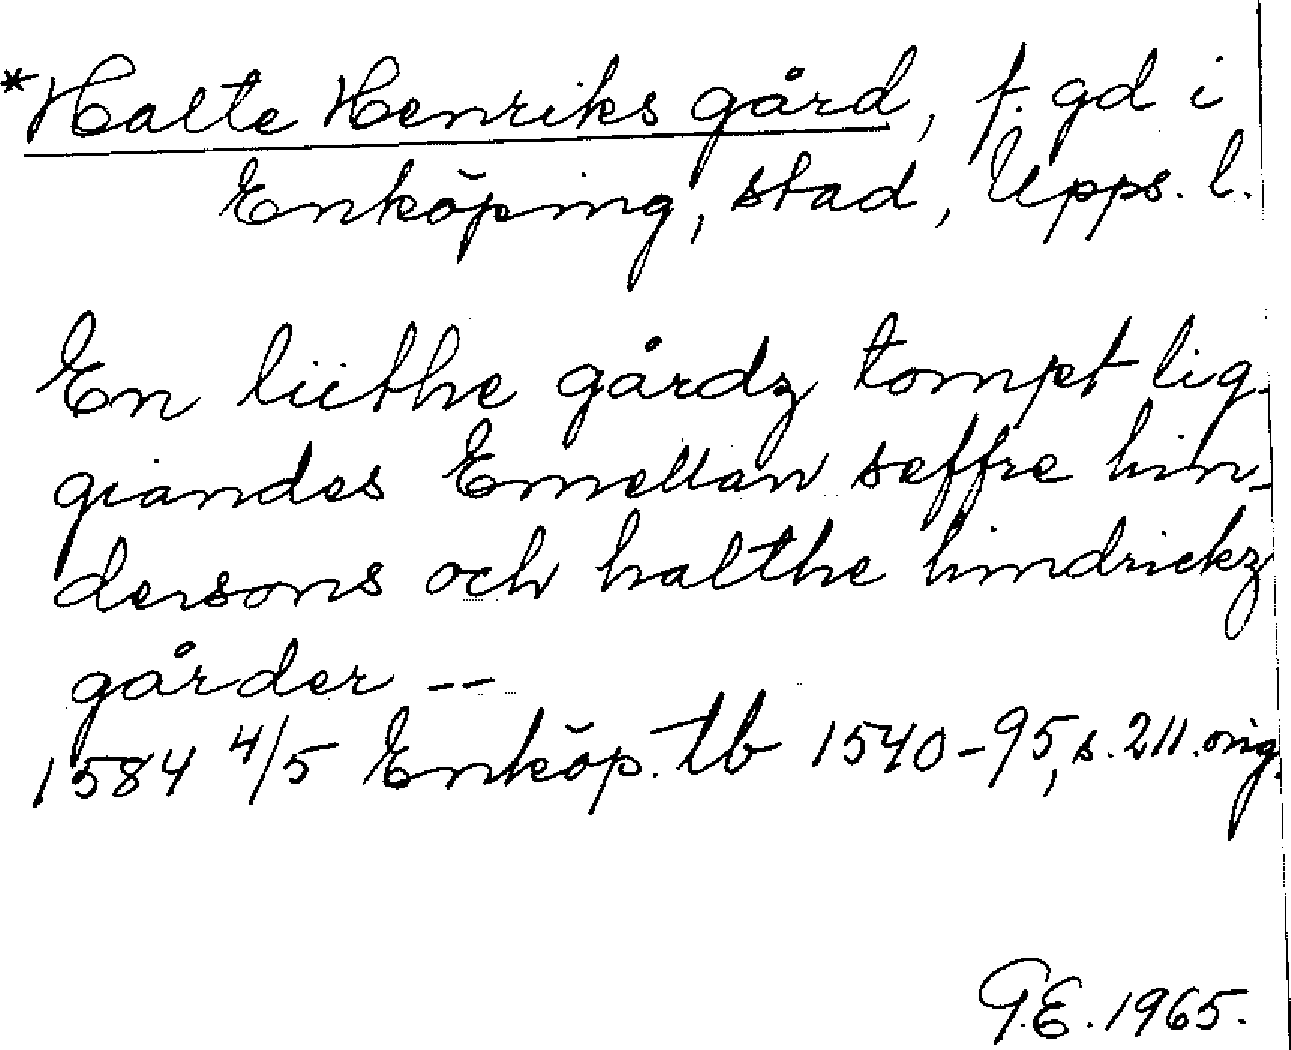 *Halte Henriks gård, f. gd i
Enköping, stad, Upps. l.
En liithe gårdz tompt lig-
giandes Emellan seffre hin-
dersons och halthe hindrickz
gårder --
1584 4/5 Enköp. tb 1540-95, s. 211. orig.
G.E. 1965.